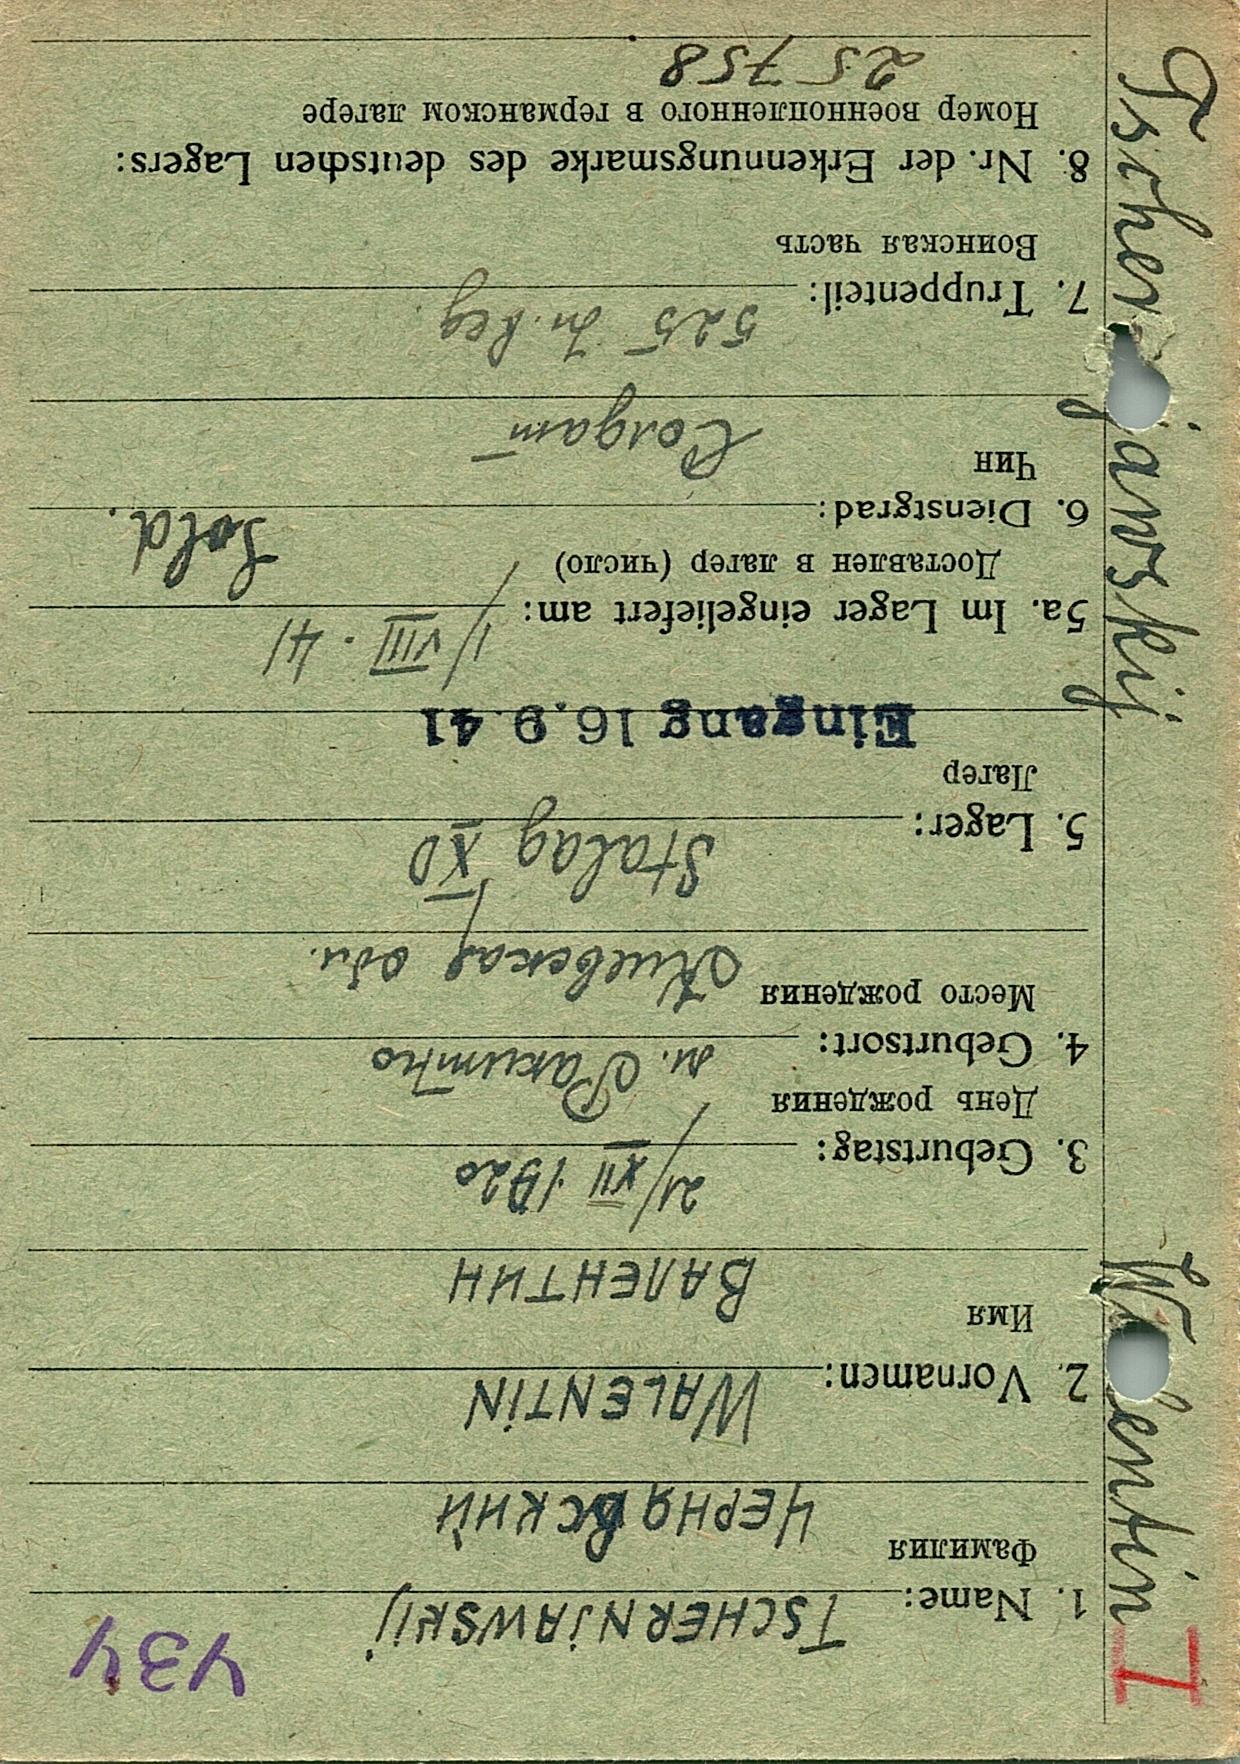 434
1. Name: TSCHERNJAWSKIJ
Фамилия
ЧЕРНЯВСКИЙ
2. Vornamen: WALENTIN
Имя
ВАЛЕНТИН
3. Geburtstag: 21/XII 1920
День рождения
4. Geburtsort: м. Ракитно
Место рождения
Киевская обл.
5. Lager: Stalag XD
Лагер
Eingang 16.9.41
5a. Im Lager eingeliefert am: 1/VIII. 41
Доставлен в лагер (число)
6. Dienstgrad: Sold.
Чин
Солдат
7. Truppenteil: 525 In. Reg.
Воинская часть
8. Nr. der Erkennungsmarke des deutschen Lagers:
Номер военнопленного в германском лагере
25758
I
Tschernjawskij